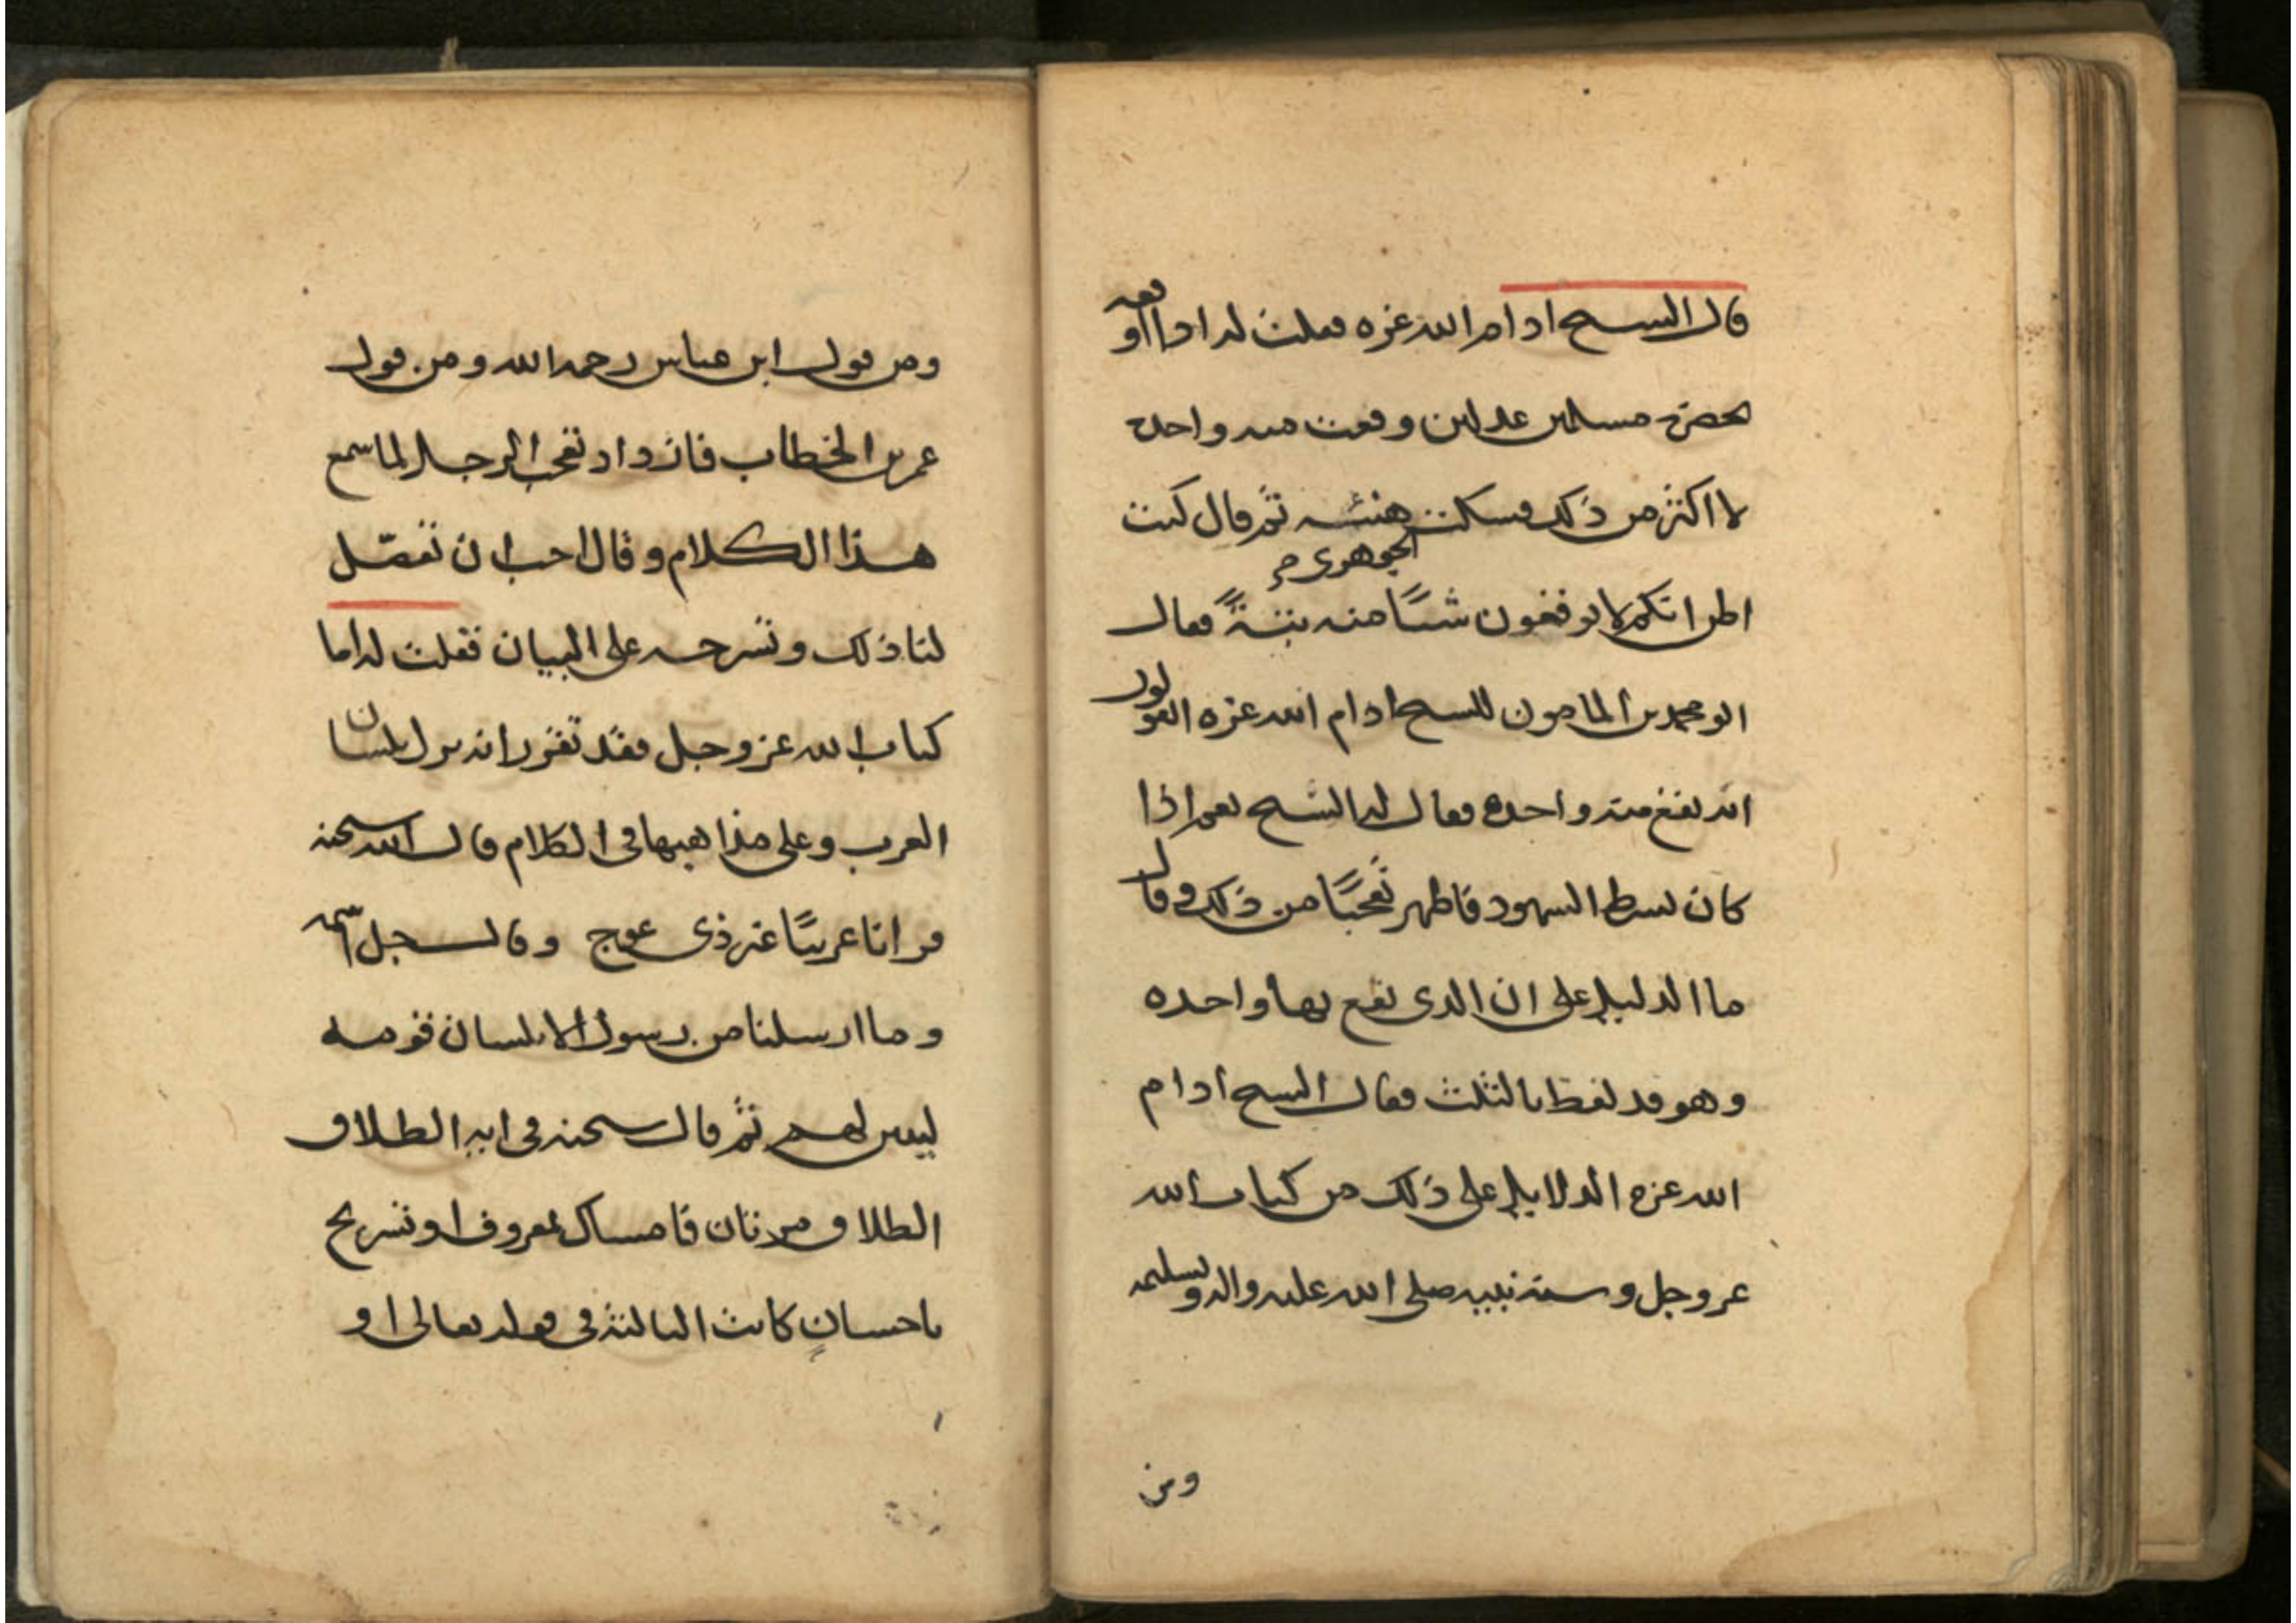 قال الشيخ ادام الله عزه فقلت له اذا اوقعه
بحضرة مسلمين عدلين وقعت منه واحدة
لا اكثر من ذلك فسكت هنئة ثم قال كنت
الجوهرى
اظن انكم لا توقعون شيئًا منه بتةً فقال
ابو محمد بن المامون للشيخ ادام الله عزه اتقولون
انه يقع منه واحدة فقال له الشيخ نعم اذا
كان بشرط الشهود فاظهر تعجبًا من ذلك وقال
ما الدليل على ان الذى يقع بها واحده
وهو قد لفظ بالثلث فقال الشيخ ادام
الله عزه الدلايل على ذلك من كتاب الله
عز وجل وسنة نبيه صلى الله عليه واله وسلم
ومن
ومن قول ابن عباس رحمه الله ومن قول
عمر بن الخطاب فازداد تعجب الرجل لما سمع
هذا الكلام وقال احب ان تفصّل
لنا ذلك وتشرحه على البيان فقلت له اما
كتاب الله عز وجل فقد تقرر انه نزل بلسان
العرب وعلى مذاهبها فى الكلام قال الله سبحنه
قرانا عربيًا غير ذى عوج وقال جل اسمه
وما ارسلنا من رسول الا بلسان قومه
ليبين لهم ثم قال سبحنه فى اية الطلاق
الطلاق مرتان فامساك بمعروف او تسريح
باحسانٍ كانت الثالثة فى قوله تعالى او